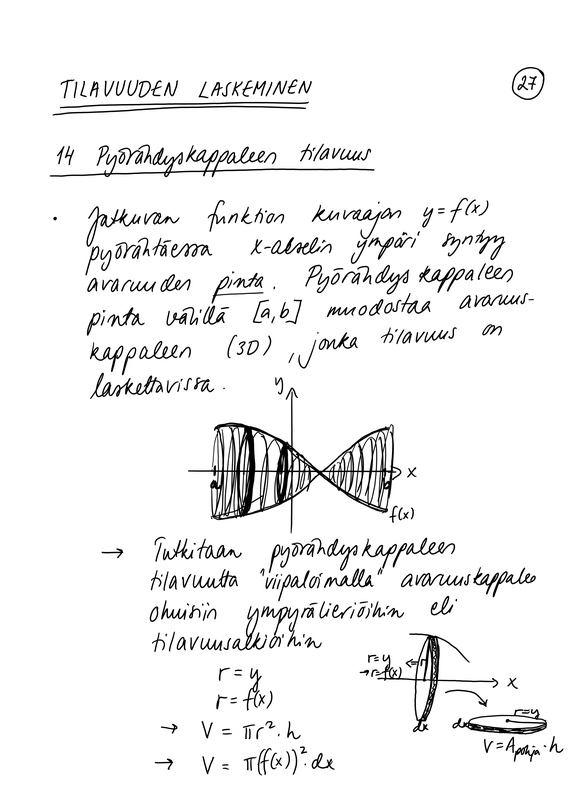 TILAVUUDEN LASKEMINEN
27
14 Pyörähdyskappaleen tilavuus
• Jatkuvan funktion kuvaajan y=f(x)
pyörähtäessä x-akselin ympäri syntyy
avaruuden pinta. Pyörähdyskappaleen
pinta välillä [a,b] muodostaa avaruus-
kappaleen (3D), jonka tilavuus on
laskettavissa.
y
x
a
b
f(x)
→ Tutkitaan pyörähdyskappaleen
tilavuutta "viipaloimalla" avaruuskappale
ohuisiin ympyrälieriöihin eli
tilavuusalkioihin
r = y
r = f(x)
→ V = πr²·h
→ V = π(f(x))²·dx
r=y
→r=f(x)
r
x
dx
r=y
dx
V=Apohja·h